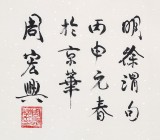 明徐渭句
丙申元春
於京華
周宏興